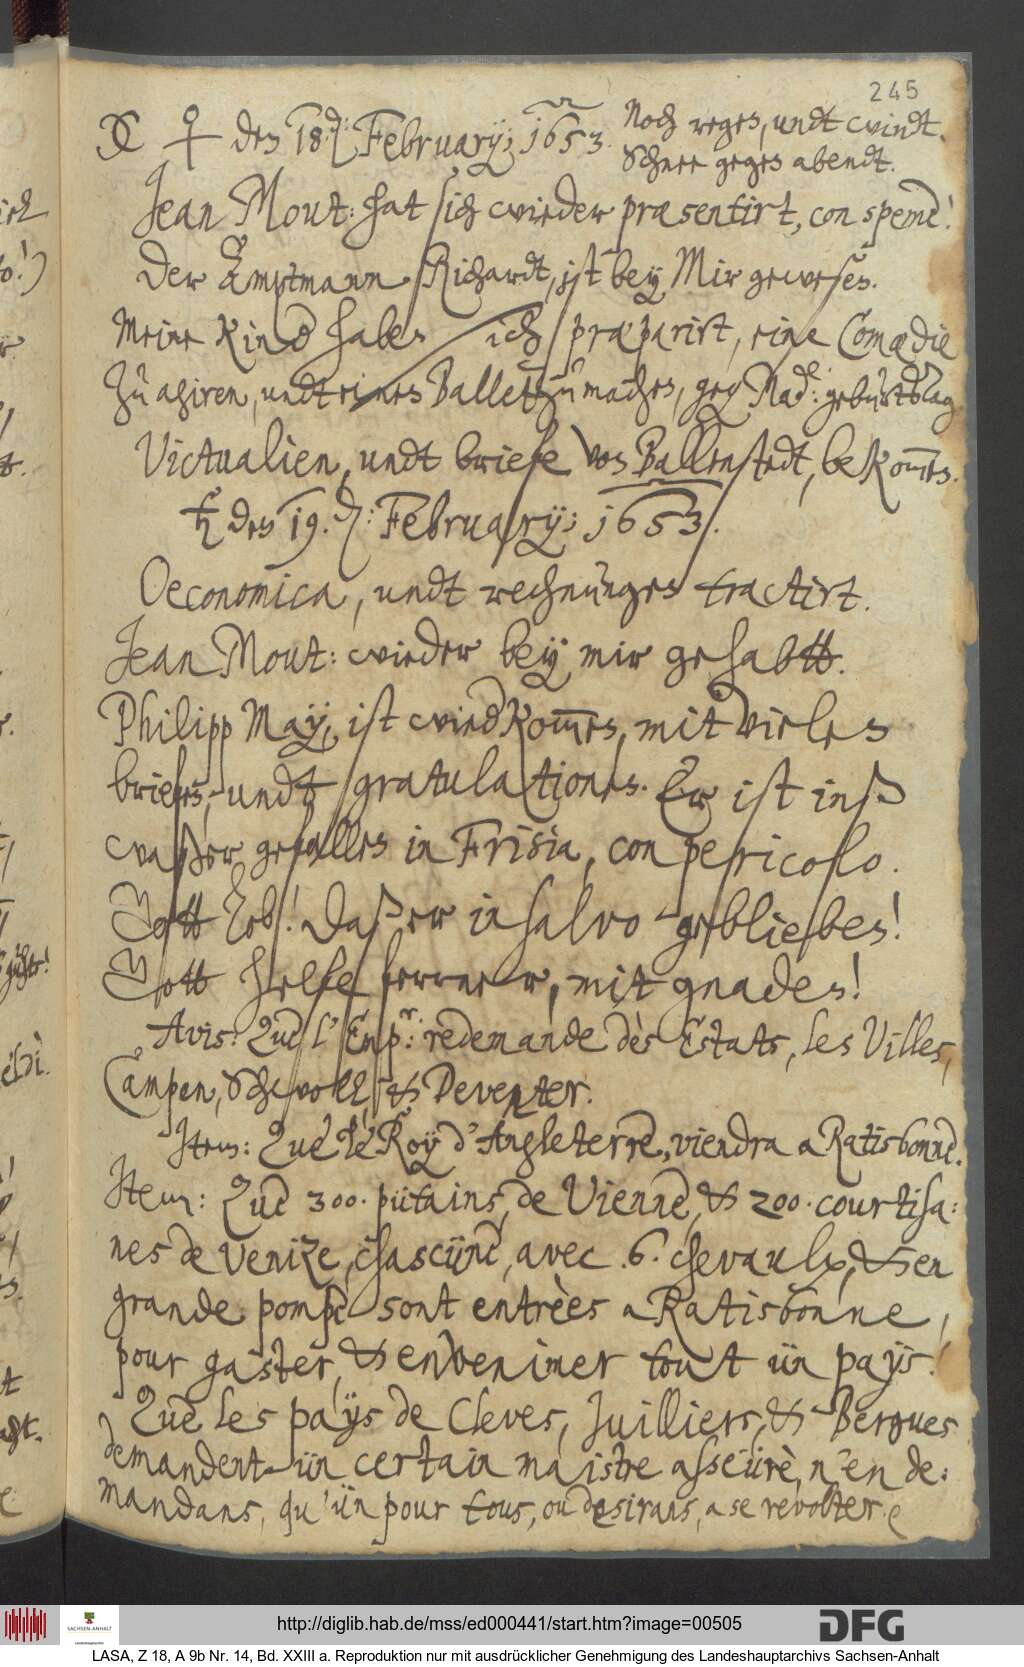 245
♀ den 18. Februarÿ; 1653. Noch regen, undt windt.
Schnee gegen abendt.
Jean Mout: hat sich wieder præsentirt, con speme!
Der Ambtmann, Richardt, ist bey Mir gewesen.
Meine Kind haben sich præparirt, eine Comædie
zu agiren, undt einen Ballet zu machen, geg Mad: geburtstag
Victualien, undt briefe von Ballenstedt, bekom̅en.
♄ den 19. Februarÿ; 1653.
Oeconomica, undt rechnungen tractirt.
Jean Mout: wieder bey mir gehabtt.
Philipp Maÿ, ist wiedkom̅en, mit vielen
briefen, undt gratulationen. Er ist inß
waßer gefallen in Frisia, con pericolo.
Gott lob! Daß er in salvo geblieben!
Gott helfe ferrner, mit gnaden!
Avis: Que l' Emp.r: redemande dès Estats, les Villes,
Campen, Schwoll, & Deventer.
Item: Que le Roÿ d'Angleterre, viendra a Ratisbonne.
Item: Que 300. pütains, de Vienne, & 200. courtisa:
nes de Venize, chascüne, avec .6. chevaulx, & en
grande pompe sont entrèes a Ratisbonne,
pour gaster, & envenimer tout ün paÿs!
Que les paÿs de Cleves, Juilliers, & Bergues
demandent ün certain maistre asseürè, n'en de:
mandans, qu'ün pour tous, ou desirans, a se revolter.
http://diglib.hab.de/mss/ed000441/start.htm?image=00505
DFG
SACHSEN-ANHALT
LASA, Z 18, A 9b Nr. 14, Bd. XXIII a. Reproduktion nur mit ausdrücklicher Genehmigung des Landeshauptarchivs Sachsen-Anhalt